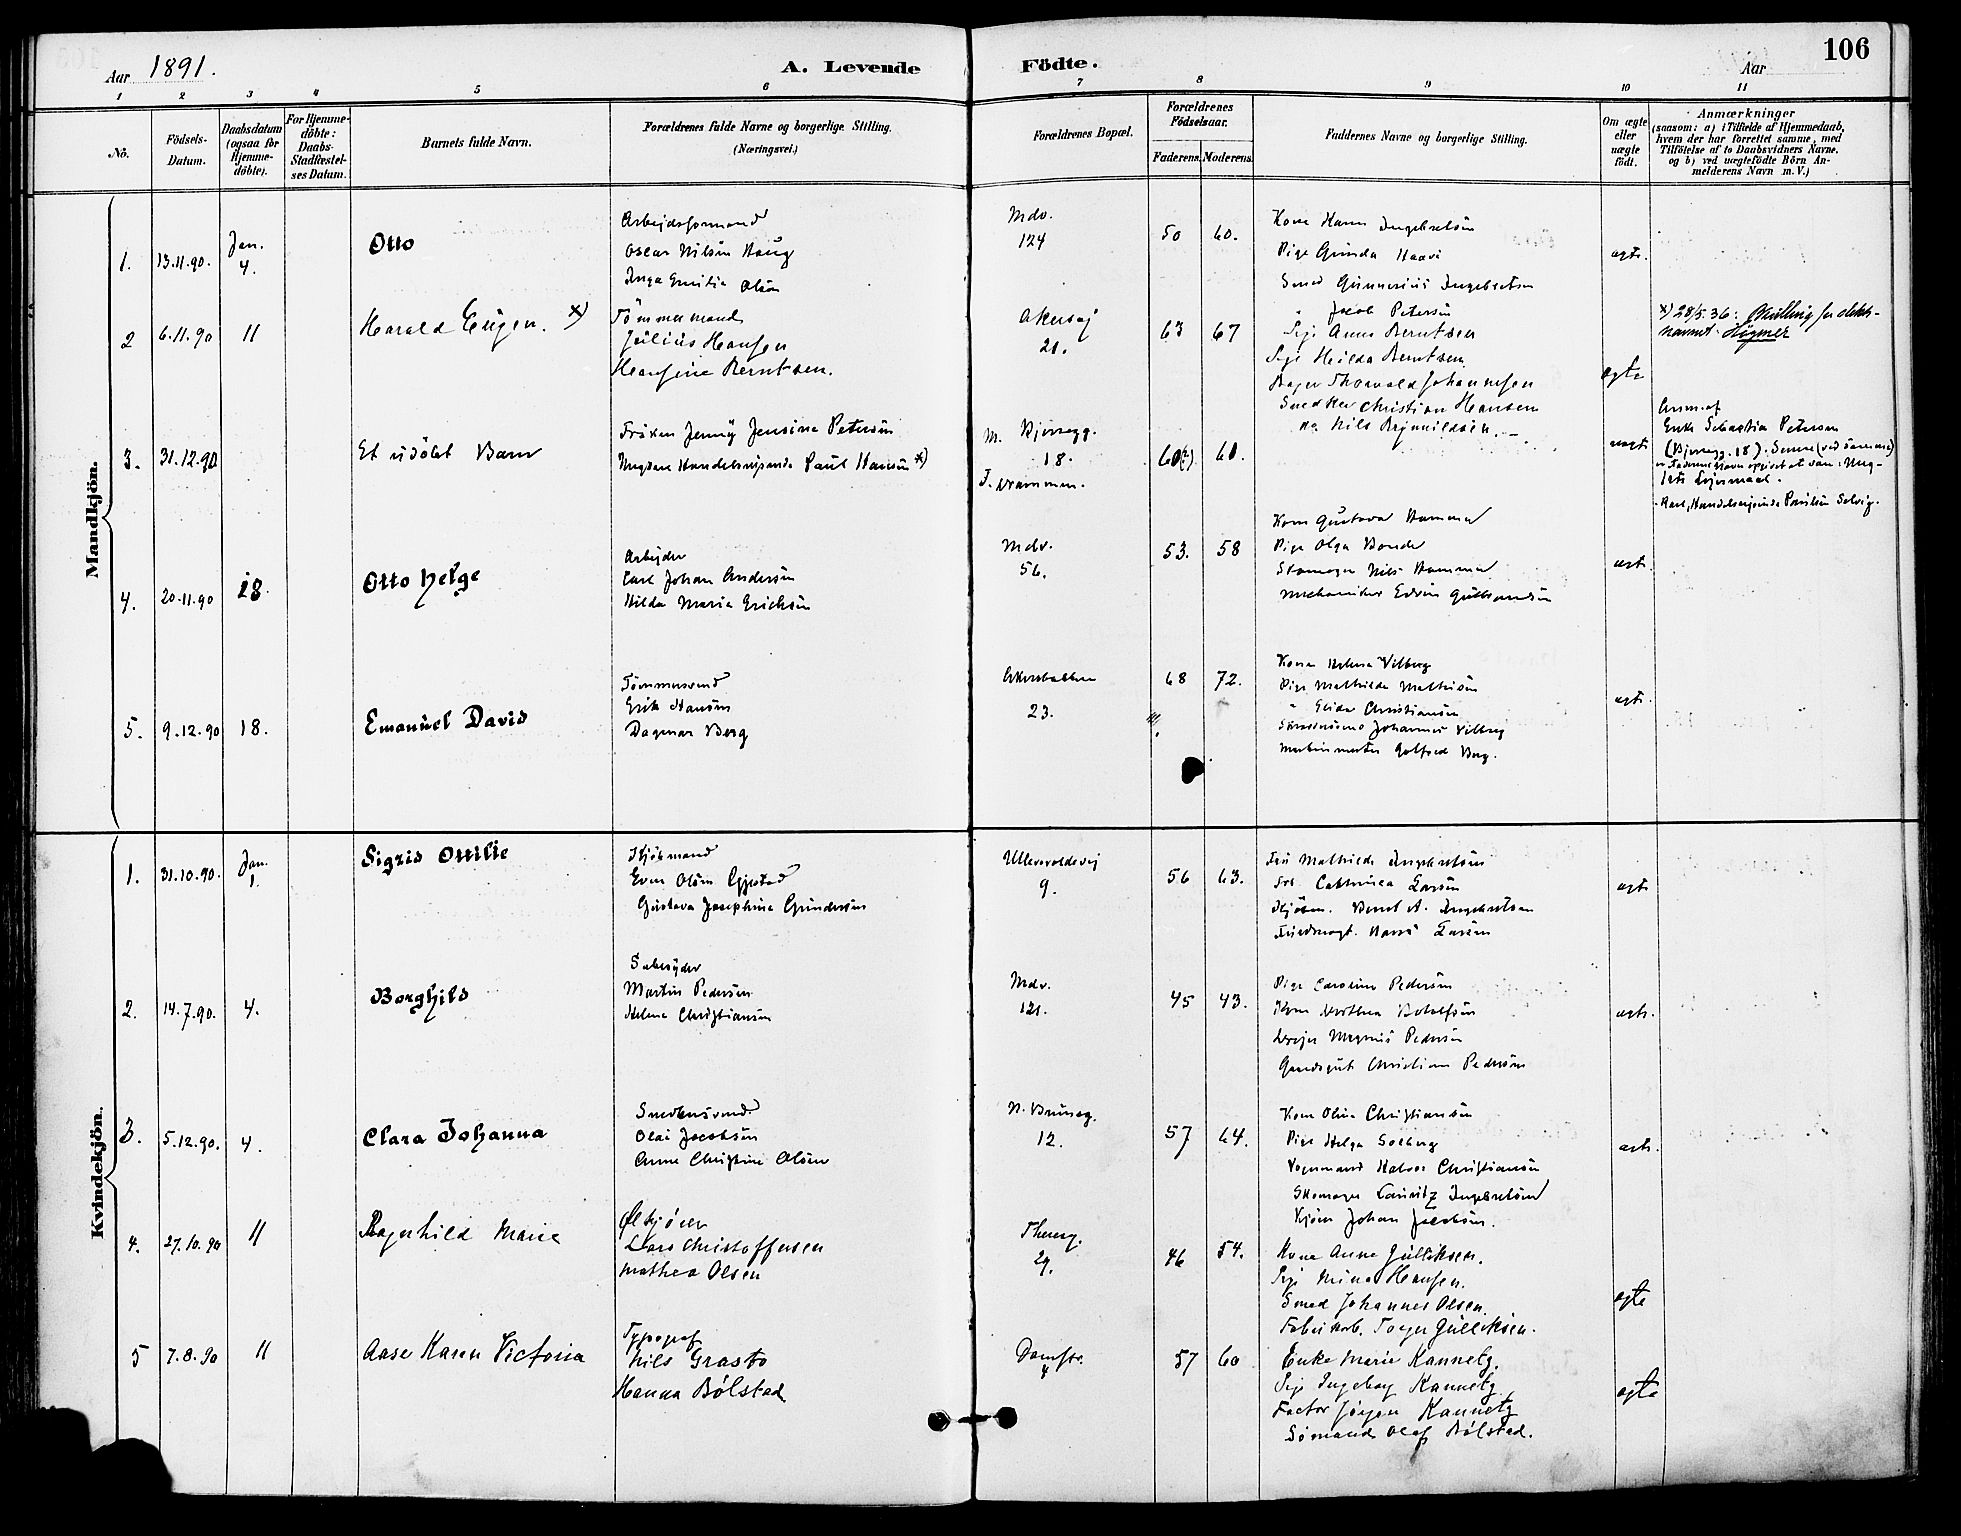 Aar 1891.
A. Levende Födte.
Aar
106
1 2 3 4 5 6 7 8 9 10 11
No.
Födsels-Datum.
Daabsdatum (ogsaa for Hjemme-döbte).
For Hjemme-döbte: Daabs-Stadfæstel-ses Datum.
Barnets fulde Navn.
Forældrenes fulde Navne og borgerlige Stilling.
(Næringsvei.)
Forældrenes Bopæl.
Forældrenes Födselsaar.
Faderens. Moderens.
Faddernes Navne og borgerlige Stilling.
Om ægte eller uægte födt.
Anmærkninger
(saasom: a) i Tilfælde af Hjemmedaab,
hvem der har forrettet samme, med
Tilföielse af to Daabsvidners Navne,
og b) ved uægtefödte Börn An-
melderens Navn m. V.)
Mandkjön.
1. 13.11.90. Jan. 4.
Otto
Arbejdsformand
Oscar Nilsen Haug
Inga Emilie Olsen
Mdv.
124
50 60.
Kone Karen Ingebretsen
Pige Gunda Haave
Smed Gunnerius Ingebretsen
ægte.
2 6.11.90 11
Harald Eugen. x)
Tömmermand
Julius Hansen
Hansine Berntsen.
Akersvej
21.
63 67
" Jacob Petersen
Pige Anna Berntsen
Pige Hilda Berntsen
Bager Thorvald Johannesen
Snedker Christian Hansen
do Nils Brynnildsen.
ægte
x) 28/5.36: Bevilling for slekts-
navnet: Hugmer
3. 31.12.90
Et udöbt Barn
Fröken Jenny Jensine Petersen
Ungkarl Handelsrejsende Paul Hansen x)
M. Bjerregg.
18.
F. Drammen.
60(?). 60.
uægte
Anm. af
Enke Sebastia Petersen
(Bjerregg. 18).
4. 20.11.90 18.
Otto Helge
Arbejder
Carl Johan Andersen
Hilda Maria Ericksen
Mdv.
56.
53. 58
Kone Gustava Hammer
Pige Olga Bonde
Skomager Nils Hammer
Mechaniker Edvin Gulbrandsen
ægte.
5. 9.12.90 18.
Emanuel David
Tömmersvend
Erik Hansen
Dagmar Berg
Akersbakken
23.
68 72.
Kone Helena Vilberg
Pige Mathilde Mathisen
" Christiansen
Johannes Vilberg
Gotfred Berg.
ægte.
Kvindekjön.
1. 31.10.90. Jan. 1.
Sigrid Ottilie
Kjöbmand
Even Olsen
Gustava Josephine Gundersen
Ullevoldsvej
9.
56 63.
Fru Mathilde Ingebretsen
Frk. Cathrinca Larsen
Kjöbm. Bernt A. Ingebretsen
Larsen
ægte
2. 14.7.90. 4.
Borghild
Martin Pedersen
Helene Christiansen
Mdv.
121.
45 43.
Pige Caroline Pedersen
Kone Dorthea Botolfsen
Magnus Pedersen
Gaardsgut Christian Pedersen
ægte.
3. 5.12.90. 4.
Clara Johanna
Snedkersvend
Olai Jacobsen
Anne Christine Olsen
N. Bruneg.
12.
57 64.
Kone Olea Christiansen
Pige Helga Solberg
Vognmand Halvor Christiansen
Skomager Lauritz Ingebretsen
Johan Jacobsen.
ægte.
4. 27.10.90 11
Ragnhild Marie
Ølkjörer
Lars Christoffersen
Mathea Olsen
Thereg.
29.
46 54.
Kone Anne Gulliksen.
Pige Mina Hansen.
Smed Johannes Olsen.
Fabrikarb. Torger Gulliksen.
ægte
5 7.8.90 11
Aase Karen Victoria
Typograf
Nils Grasto
Hanna Bölstad
Damstr.
4
57 60
Enke Marie Kannetg.
Pige Ingeborg Kannetg
Factor Jörgen Kannetg
Sömand Olaf Bölstad.
ægte